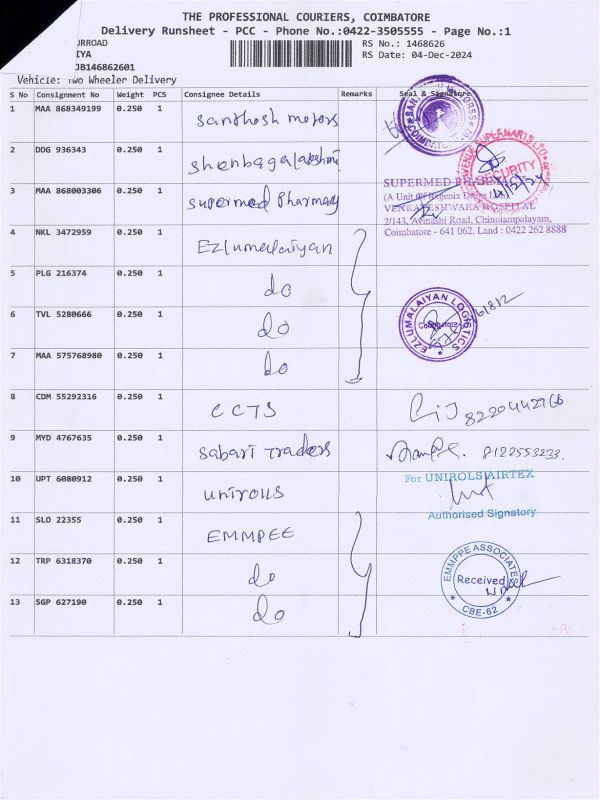 THE PROFESSIONAL COURIERS, COIMBATORE
Delivery Runsheet - PCC - Phone No.:0422-3505555 - Page No.:1
URROAD
RS No.: 1468626
IYA
RS Date: 04-Dec-2024
JB146862601
Vehicle: Two Wheeler Delivery
S No Consignment No Weight PCS Consignee Details Remarks Seal & Signature
1 MAA 868349199 0.250 1 Santhosh motors
COIMBATORE
2 DDG 936343 0.250 1 Shenbagalakshmi
SECURITY
3 MAA 868003306 0.250 1 Supermed Pharmacy
SUPERMED
(A Unit Of
VENKATESHWARA HOSPITAL
2/143, Avinashi Road, Chinniampalayam,
Coimbatore - 641 062. Land : 0422 262 8888
4 NKL 3472959 0.250 1 Ezlumalaiyan
5 PLG 216374 0.250 1 do
6 TVL 5280666 0.250 1 do
EZLUMALAIYAN LOGISTICS
Coimbatore
7 MAA 575768980 0.250 1 do
8 CDM 55292316 0.250 1 CCTS
8220442966
9 MYD 4767635 0.250 1 Sabari Traders
8122553233.
10 UPT 6080912 0.250 1 unirolls
For UNIROLS AIRTEX
Authorised Signatory
11 SLO 22355 0.250 1 EMMPEE
12 TRP 6318370 0.250 1 do
EMMPPE ASSOCIATES
Received
CBE-62
13 SGP 627190 0.250 1 do